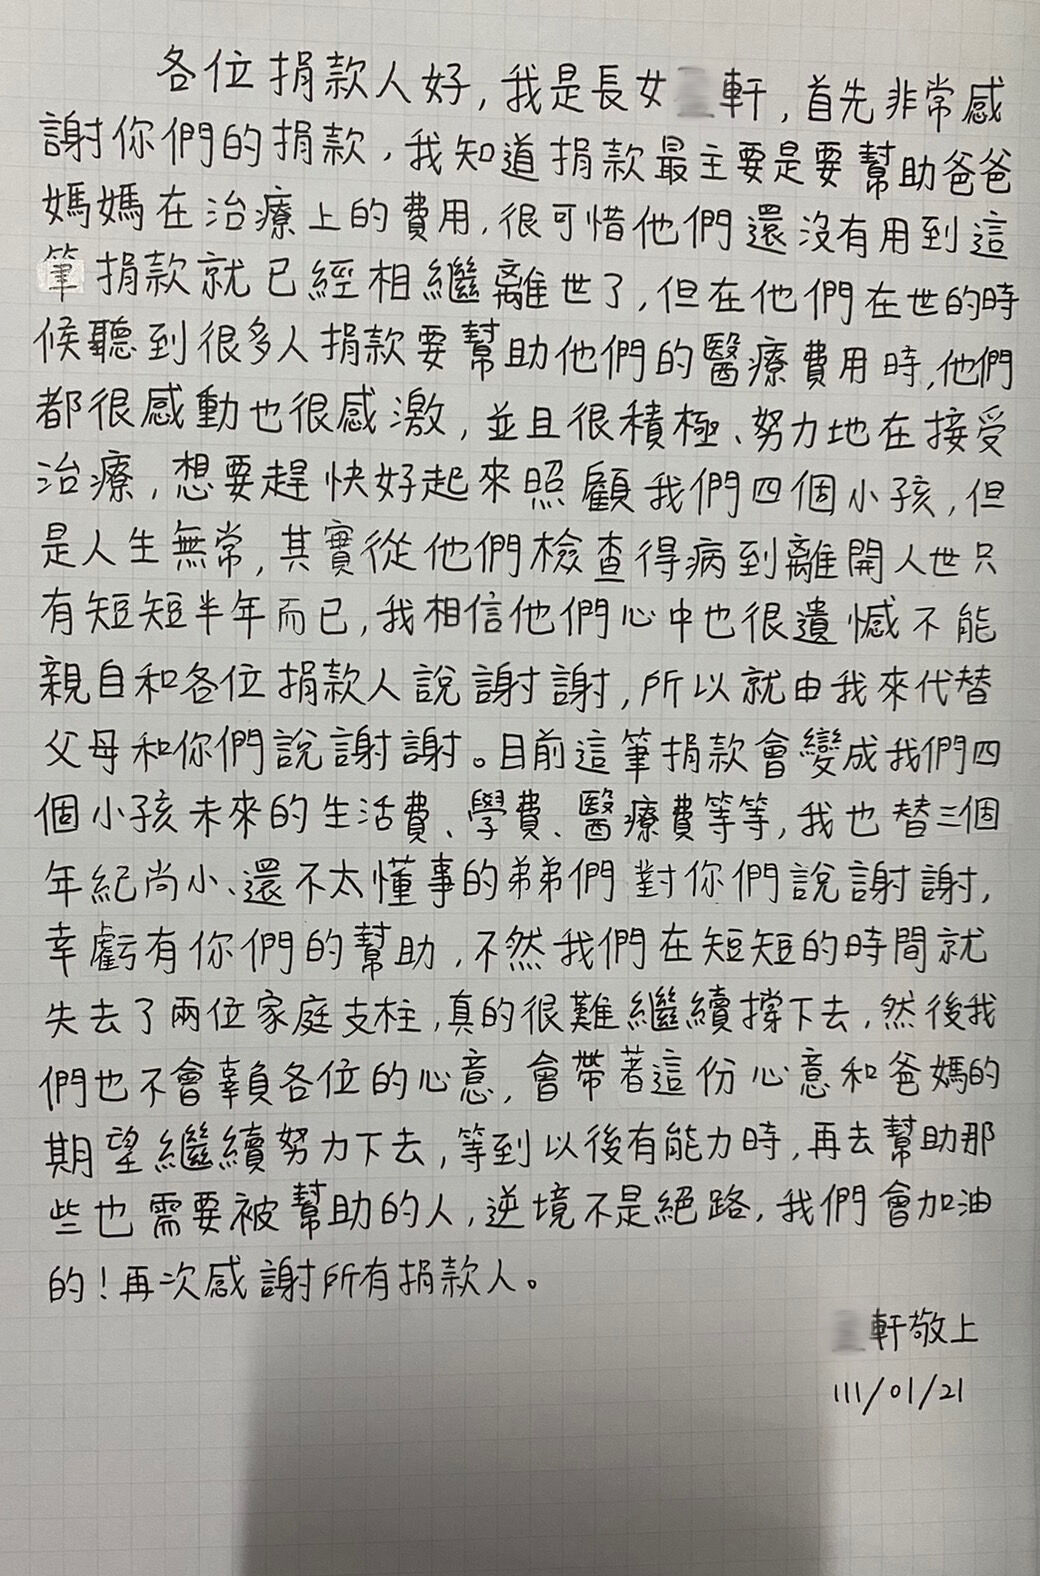 各位捐款人好,我是長女軒,首先非常感
謝你們的捐款,我知道捐款最主要是要幫助爸爸
媽媽在治療上的費用,很可惜他們還沒有用到這
筆捐款就已經相繼離世了,但在他們在世的時
候聽到很多人捐款要幫助他們的醫療費用時,他們
都很感動也很感激,並且很積極、努力地在接受
治療,想要趕快好起來照顧我們四個小孩,但
是人生無常,其實從他們檢查得病到離開人世只
有短短半年而已,我相信他們心中也很遺憾不能
親自和各位捐款人說謝謝,所以就由我來代替
父母和你們說謝謝。目前這筆捐款會變成我們四
個小孩未來的生活費、學費、醫療費等等,我也替三個
年紀尚小、還不太懂事的弟弟們對你們說謝謝,
幸虧有你們的幫助,不然我們在短短的時間就
失去了兩位家庭支柱,真的很難繼續撐下去,然後我
們也不會辜負各位的心意,會帶著這份心意和爸媽的
期望繼續努力下去,等到以後有能力時,再去幫助那
些也需要被幫助的人,逆境不是絕路,我們會加油
的!再次感謝所有捐款人。
軒敬上
111/01/21